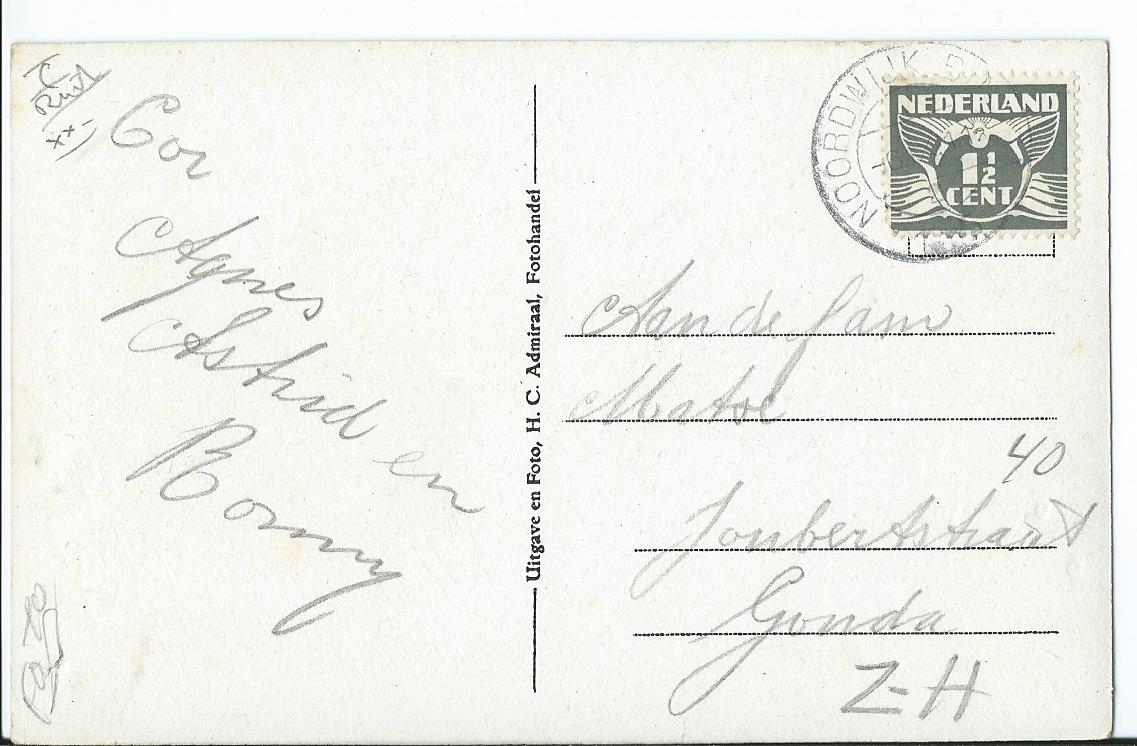 Cor
Agnes
Astrid en
Romy
Uitgave en Foto, H. C. Admiraal, Fotohandel
NOORDWIJK
NEDERLAND
1½
CENT
Aan de fam
40
Joubertstraat
Gouda
Z-H